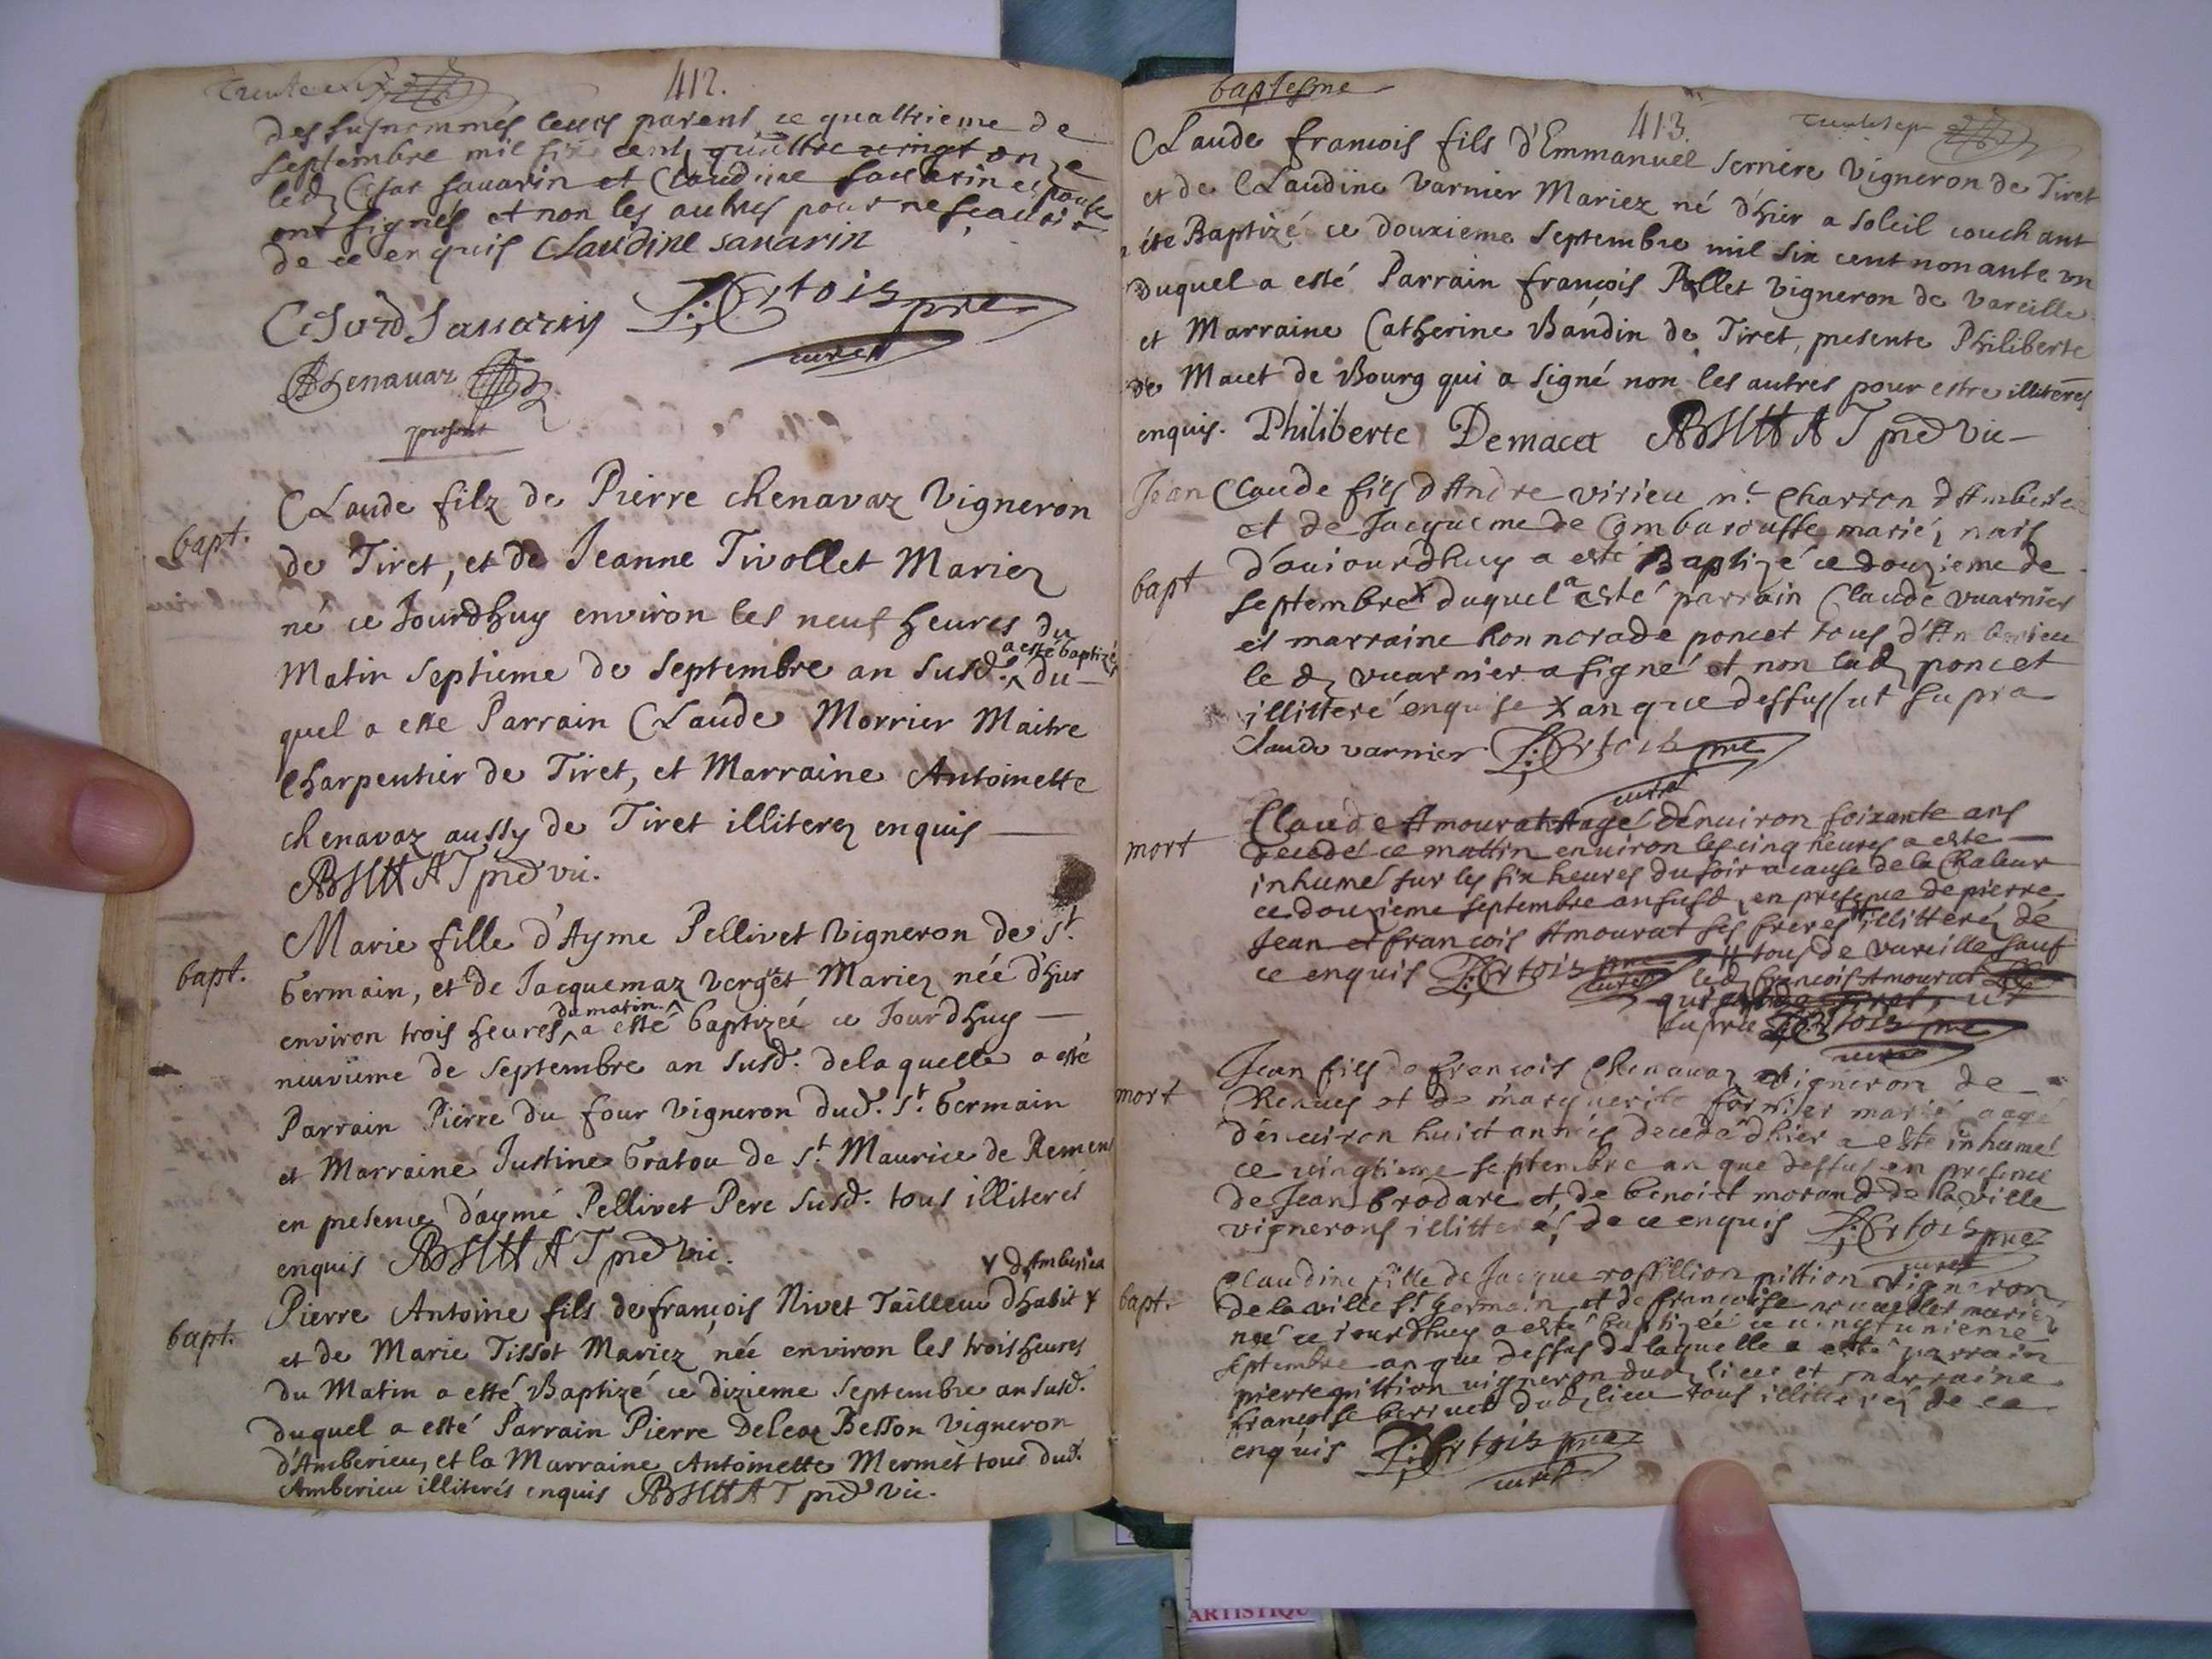 412.
des susnommés leurs parens ce quattrieme de
septembre mil six cents quattre vingt onze
led Cesar sauarin et Claudine sauarin espouse
ont signés et non les autres pour ne sçauoir
de ce enquis Claudine sauarin
Cesard Sauariny L: Ertois pre
curé
Chenauaz
present
bapt.
CLaude filz de Pierre chenavaz Vigneron
de Tiret, et de Jeanne Tivollet Mariez
né ce Jourdhuy environ les neuf heures du
a esté baptizé
Matin septieme de septembre an susd. ^ du-
quel a esté Parrain CLaude Morrier Maitre
Charpentier de Tiret, et Marraine Antoinette
chenavaz aussy de Tiret illiterez enquis
pre vic.
bapt.
Marie fille d'Ayme Pellivet Vigneron de St.
Germain, et de Jacquemaz verget Mariez née d'hier
du matin
environ trois heures ^ a esté baptizéé ce Jourdhuy
neuvieme de septembre an susd. delaquelle a esté
Parrain Pierre du four Vigneron dud. St. Germain
et Marraine Justine Gratou de St. Maurice de Remens
en presence d'aymé Pellivet Pere susd. tous illiterés
enquis pre vic.
x d'Amberieu
bapt.
Pierre Antoine fils de françois Nivet Tailleur d'habit x
et de Marie Tissot Mariez née environ les trois heures
du Matin a esté Baptizé ce dizieme septembre an susd.
duquel a esté Parrain Pierre Deleaz Besson Vigneron
d'Amberieu, et la Marraine Antoinette Mermet tous dud.
Amberieu illiterés enquis pre vic.
baptesme
413.
trente sept
CLaude francois fils d'Emmanuel serriere Vigneron de Tiret
et de CLaudine Varnier Mariez né d'hier a soleil couchant
a été Baptizé ce douxieme septembre mil six cent nonante vn
Duquel a esté Parrain françois Pollet Vigneron de Vareille
et Marraine Catherine Baudin de Tiret, presente Philiberte
de Macet de Bourg qui a signé non les autres pour estre illiterés
enquis. Philiberte Demacet pre vic
Jean Claude fils d'Andre virieu me. Charron d'Amberieu
et de Jacqueme de Combarousse mariez nais
bapt
d'aujourdhuy a esté Baptizé ce douzieme de
septembre x duquel a esté parrain Claude vuarnier
et marraine honnorade poncet tous d'Amberieu
le d vuarnier a signé et non lad poncet
illitteré enquise x an que dessus ut supra
Claude varnier L: Ertois pre
curé
mort
Claude Amourat Aagé dénuiron soixante ans
decedé ce mattin enuiron les cinq heures a esté
inhumé sur les six heures du soir a cause de la Chaleur
ce douzieme septembre an susd, en presence de pierre
Jean et francois Amourat ses freres # illitteré de
ce enquis L: Ertois pre curé # tous de vareille sauf
led francois Amourat
ut
supra L: Ertois pre
curé
mort
Jean fils de francois Chenauaz vigneron de
Chenues et de marguerite fornier marié aagé
dénuiron huict années decedé d'hier a esté inhumé
ce vingtieme septembre an que dessus en presence
de Jean brodare et de benoict morand de la ville
vignerons illitterés de ce enquis L: Ertois pre
curé
bapt.
Claudine fille de Jacque rossillion pittion vigneron
de la ville St germain et de francoise mariez
née ce jourdhuy a esté baptizéé ce vingtunieme
septembre an que dessus de laquelle a esté parrain
pierre pittion vigneron dud lieu et marraine
francoise dud lieu tous illitterés de ce
enquis L: Ertois pre
curé
ARTISTIQU